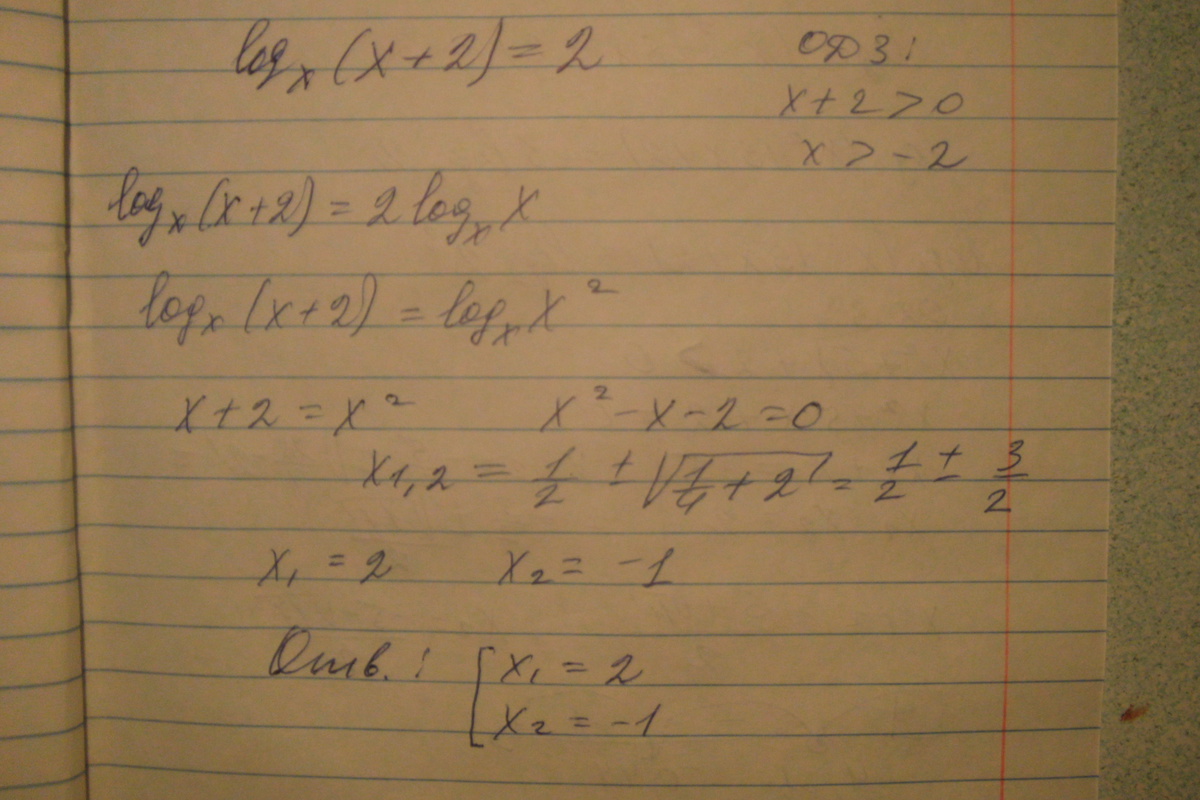 log_x (x+2) = 2
ОДЗ:
x+2 > 0
x > -2
log_x (x+2) = 2 log_x x
log_x (x+2) = log_x x²
x+2 = x² x² - x - 2 = 0
x1,2 = 1/2 ± √(1/4 + 2) = 1/2 ± 3/2
x₁ = 2 x₂ = -1
Отв.: [ x₁ = 2
x₂ = -1